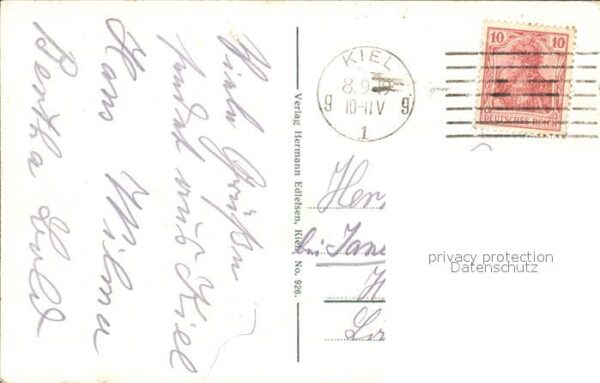 Viele Grüße
sendet aus Kiel
Hans Wilma
Bertha
Verlag Hermann Edlefsen, Kiel. No. 926.
KIEL
8.9
10-11V
g g
1
10 10
DEUTSCHES REICH
Herr
bei Jane
privacy protection
Datenschutz